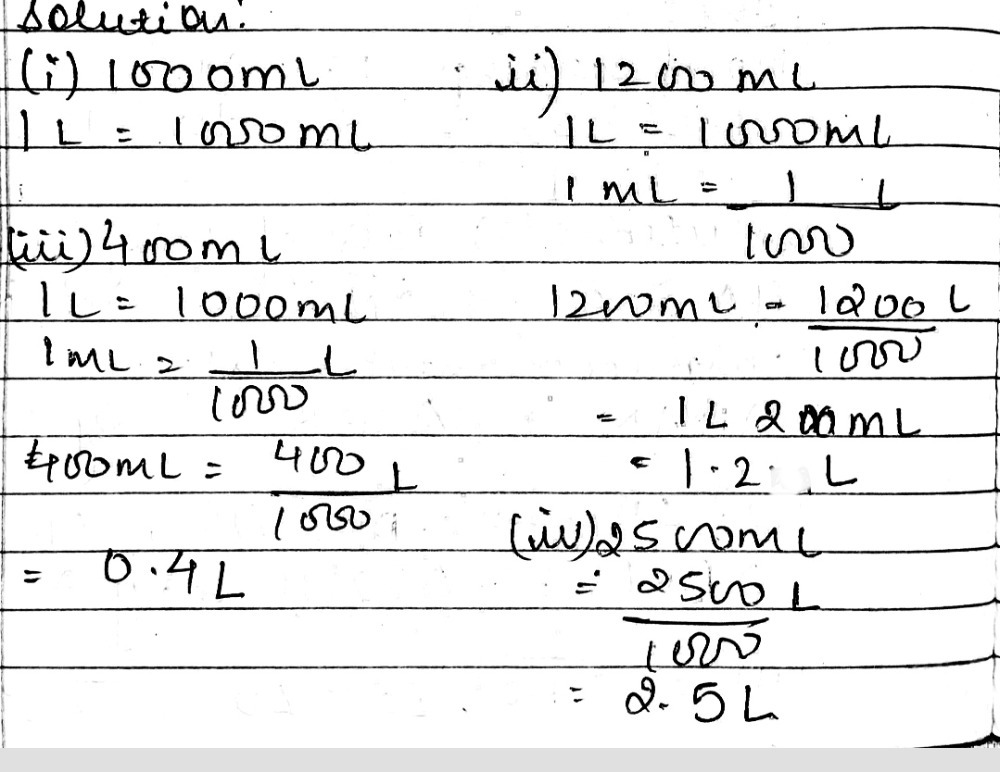 Solution:
(i) 1000mL
1L = 1000mL
ii) 1200 mL
1L = 1000mL
1 mL = 1/1000 L
1200mL = 1200/1000 L
= 1L 200mL
= 1.2 L
(iii) 400mL
1L = 1000mL
1mL = 1/1000 L
400mL = 400/1000 L
= 0.4L
(iv) 2500mL
= 2500/1000 L
= 2.5L